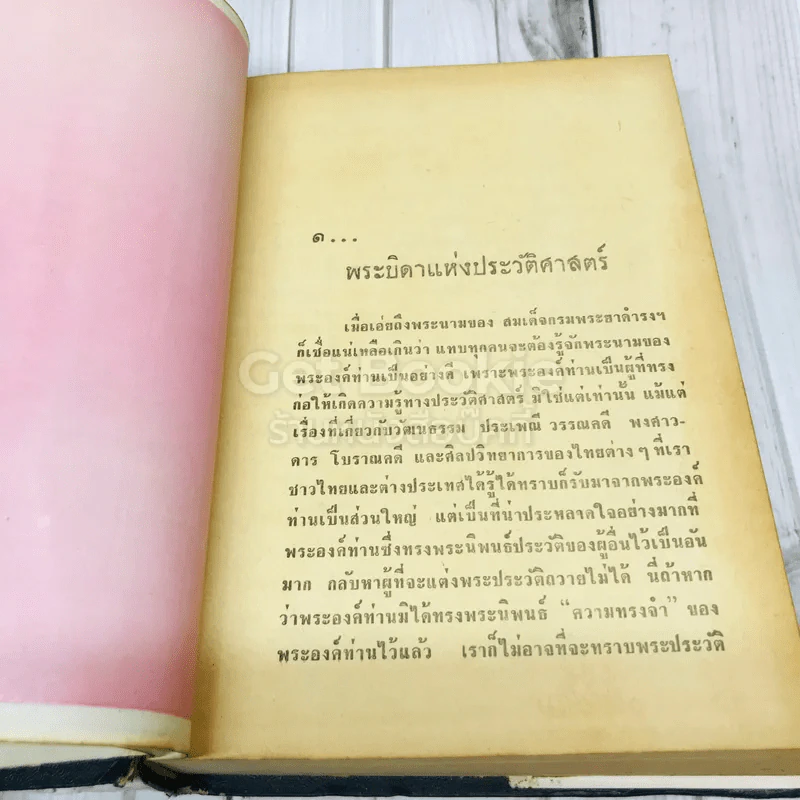 ๑...
พระบิดาแห่งประวัติศาสตร์
เมื่อเอ่ยถึงพระนามของ สมเด็จกรมพระยาดำรงฯ
ก็เชื่อแน่เหลือเกินว่า แทบทุกคนจะต้องรู้จักพระนามของ
พระองค์ท่านเป็นอย่างดี เพราะพระองค์ท่านเป็นผู้ที่ทรง
ก่อให้เกิดความรู้ทางประวัติศาสตร์ มิใช่แต่เท่านั้น แม้แต่
เรื่องที่เกี่ยวกับวัฒนธรรม ประเพณี วรรณคดี พงศาว-
ดาร โบราณคดี และศิลปวิทยาการของไทยต่าง ๆ ที่เรา
ชาวไทยและต่างประเทศได้รู้ได้ทราบก็รับมาจากพระองค์
ท่านเป็นส่วนใหญ่ แต่เป็นที่น่าประหลาดใจอย่างมากที่
พระองค์ท่านซึ่งทรงพระนิพนธ์ประวัติของผู้อื่นไว้เป็นอัน
มาก กลับหาผู้ที่จะแต่งพระประวัติถวายไม่ได้ นี่ถ้าหาก
ว่าพระองค์ท่านมิได้ทรงพระนิพนธ์ “ความทรงจำ” ของ
พระองค์ท่านไว้แล้ว เราก็ไม่อาจที่จะทราบพระประวัติ